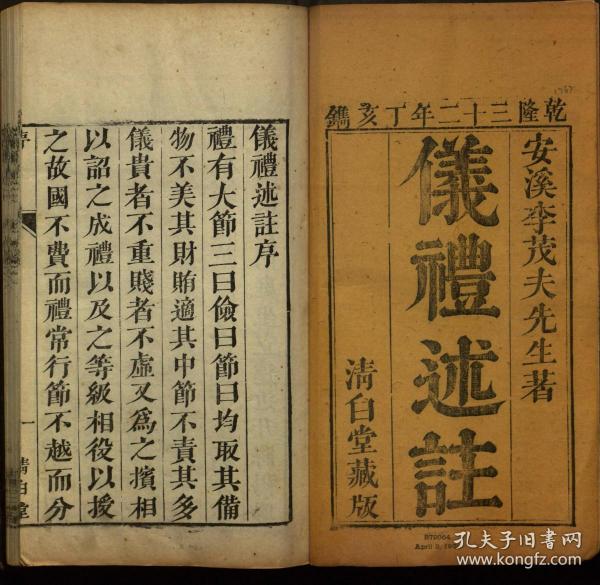 乾隆三十二年丁亥鐫
安溪李茂夫先生著
儀禮述註
清白堂藏版
儀禮述註序
禮有大節三曰儉曰節曰均取其備
物不美其財賄適其中節不責其多
儀貴者不重賤者不虛又為之擯相
以詔之成禮以及之等級相役以援
之故國不費而禮常行節不越而分
序
一
清白堂
1767
B79064
孔夫子旧书网
www.kongfz.com